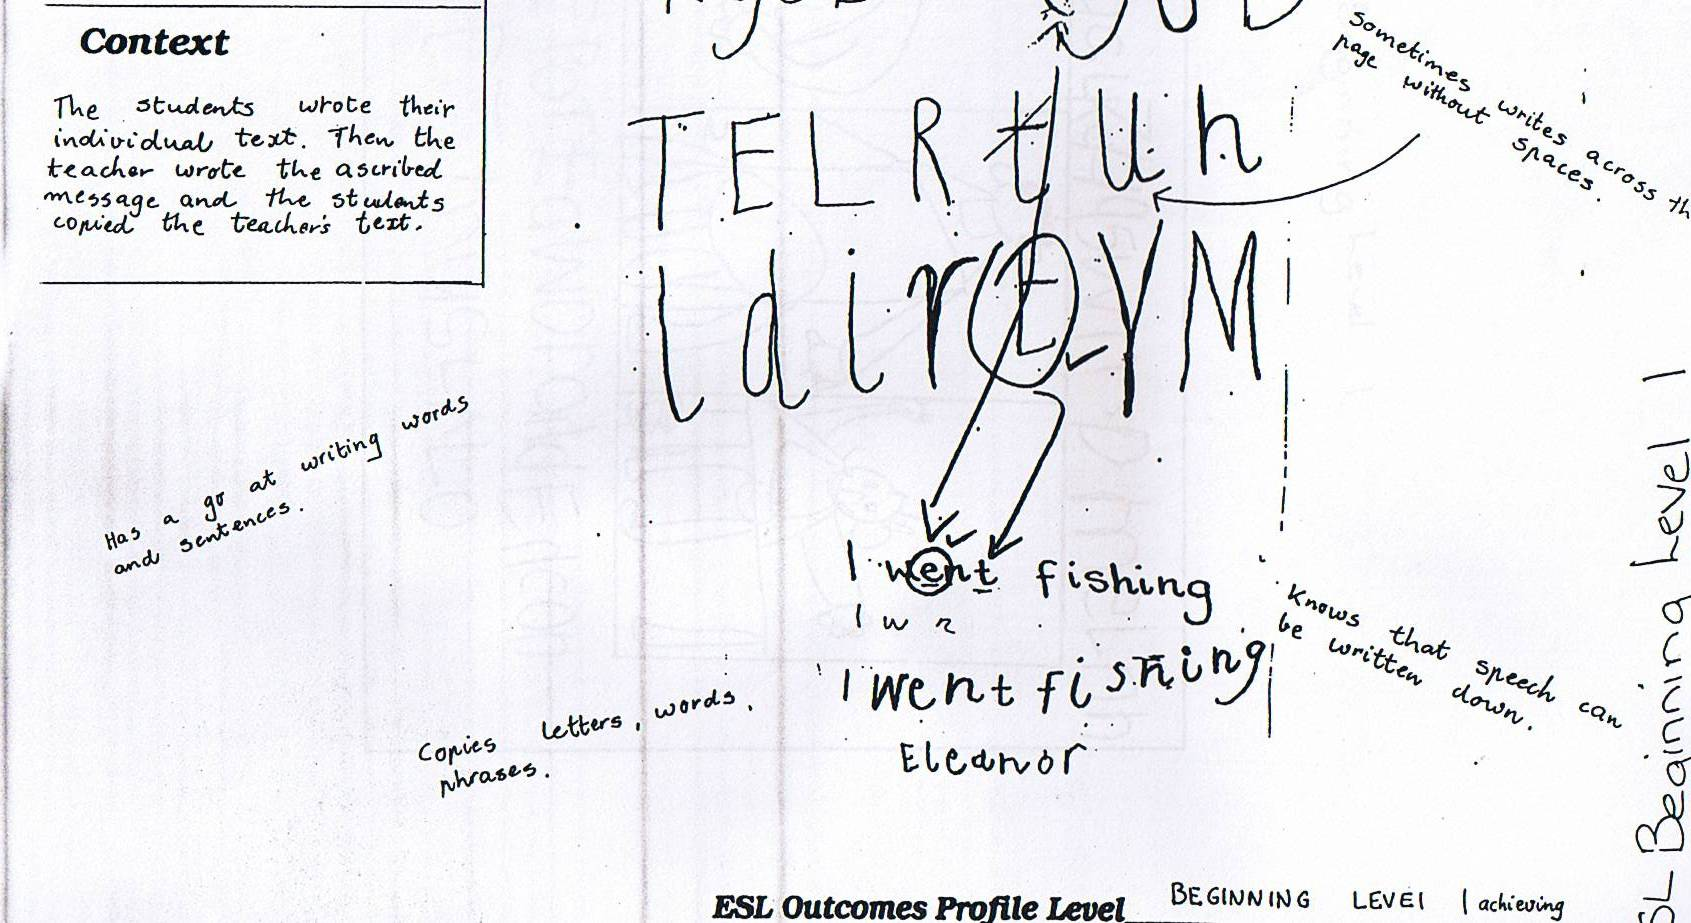 Context
The students wrote their
individual text. Then the
teacher wrote the ascribed
message and the students
copied the teacher's text.
Sometimes writes across th
page without spaces.
T E L R t U h
l d i r E Y M
Has a go at writing words
and sentences.
I went fishing
I w n
I went fishing
Eleanor
Knows that speech can
be written down.
Copies letters, words,
phrases.
ESL Outcomes Profile Level BEGINNING LEVEL 1 achieving
SL Beginning Level 1